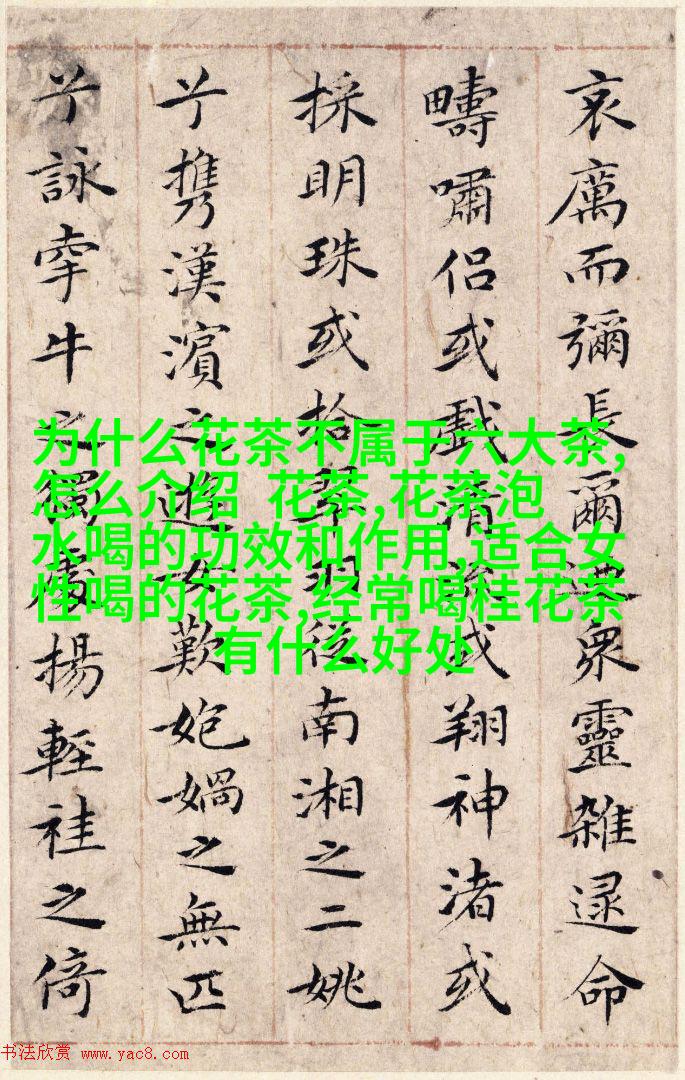 哀厲而彌長爾迺衆靈雜遝命
疇嘯侶或戲清流或翔神渚或
採明珠或拾翠羽從南湘之二姚
兮携漢濱之遊女歎媧之無匹
兮詠牽牛之獨處揚輕袿之倚
为什么花茶不属于六大茶,
怎么介绍 花茶,花茶泡
水喝的功效和作用,适合女
性喝的花茶,经常喝桂花茶
有什么好处
书法欣赏 www.yac8.com